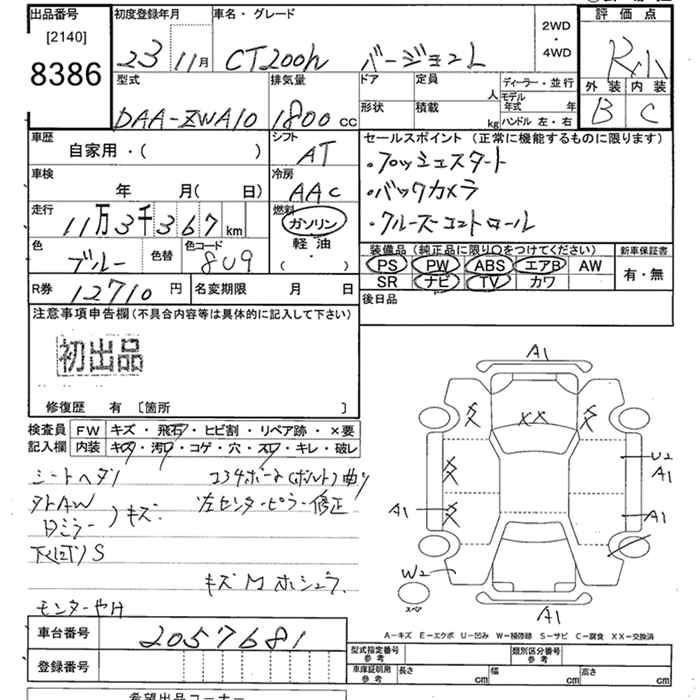 出品番号 初度登録年月 車名・グレード 2WD・4WD 評価点
[2140]
8386
23 11月 CT200h バージョンL
外装 内装
B C
型式 排気量 ドア 定員 人 ディーラー・並行
モデル年式 年
DAA-ZWA10 1800cc 形状 積載 kg ハンドル 左・右
車歴 シフト セールスポイント(正常に機能するものに限ります)
自家用・( ) AT
・プッシュスタート
車検 冷房
年 月( 日) AAC
・バックカメラ
走行 燃料
11万3千367km ガソリン
・クルーズコントロール
軽油
( ・ )
色 色替 色コード
ブルー 8U9
装備品(純正品に限り○をつけてください) 新車保証書
PS PW ABS エアB AW 有・無
SR ナビ TV カワ
R券 12710円 名変期限 月 日
後日品
注意事項申告欄(不具合内容等は具体的に記入して下さい)
初出品
修復歴 有 〔箇所 〕
検査員 FW キズ・飛石・ヒビ割・リペア跡・×要
記入欄 内装 キズ・汚レ・コゲ・穴・スレ・キレ・破レ
シートヘタリ
コアサポート(ボルト)曲り
タトAW
左センターピラー修正
Dミラー )キズ
下廻りS
キズ M ホシュウ
A1
XX
U2
A1
A1
A1
W2
スペア
A1
A-キズ E-エクボ U-凹み W-補修跡 S-サビ C-腐食 XX-交換済
車台番号 2057681
登録番号
型式指定番号 参考 類別区分番号 参考
車庫証明用 参考 長さ cm 幅 cm 高さ cm
希望出品コーナー